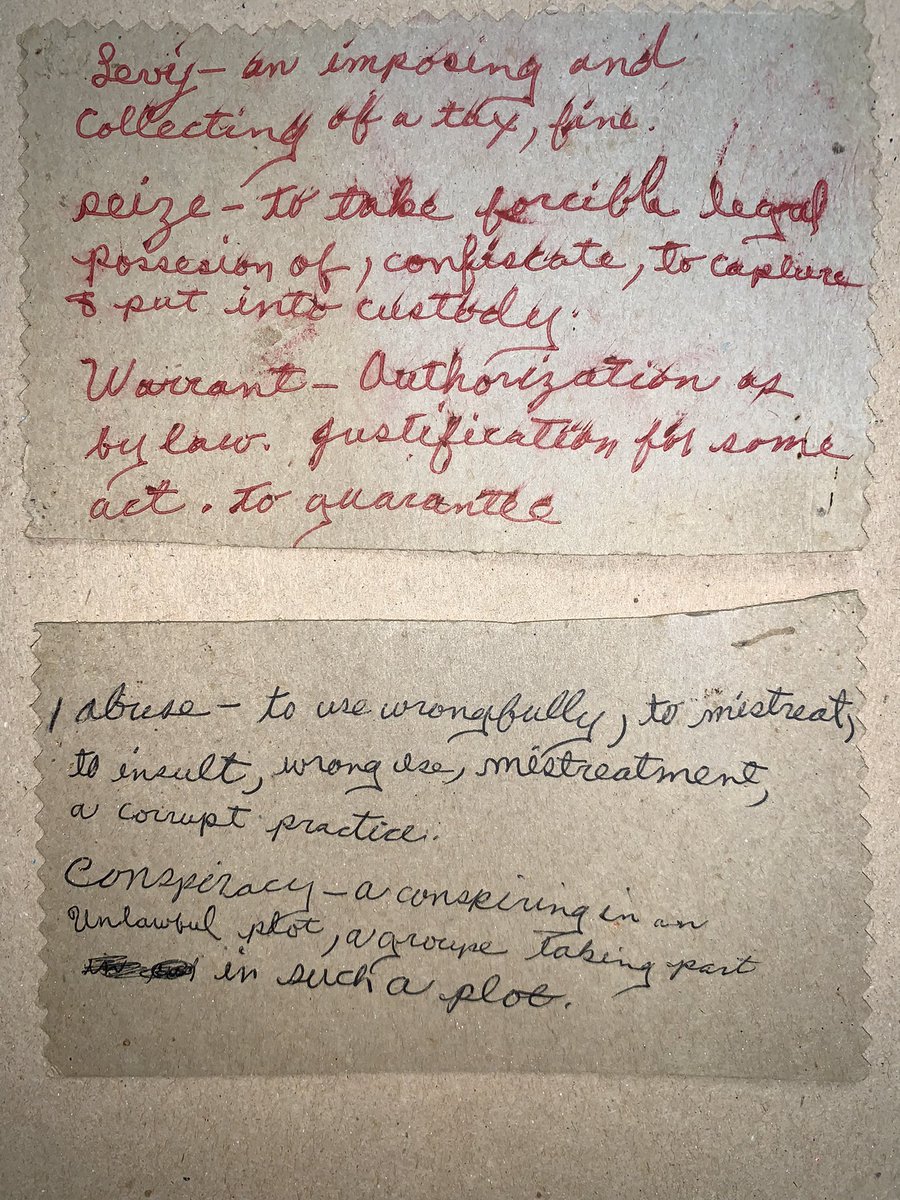 Levy - an imposing and
collecting of a tax, fine.
seize - to take forcible legal
possesion of, confiscate, to capture
& put into custody.
Warrant - Authorization as
by law. justification for some
act. to guarantee
1 abuse - to use wrongfully, to mistreat,
to insult, wrong use, mistreatment,
a corrupt practice.
Conspiracy - a conspiring in an
Unlawful plot, a groupe taking part
in such a plot.